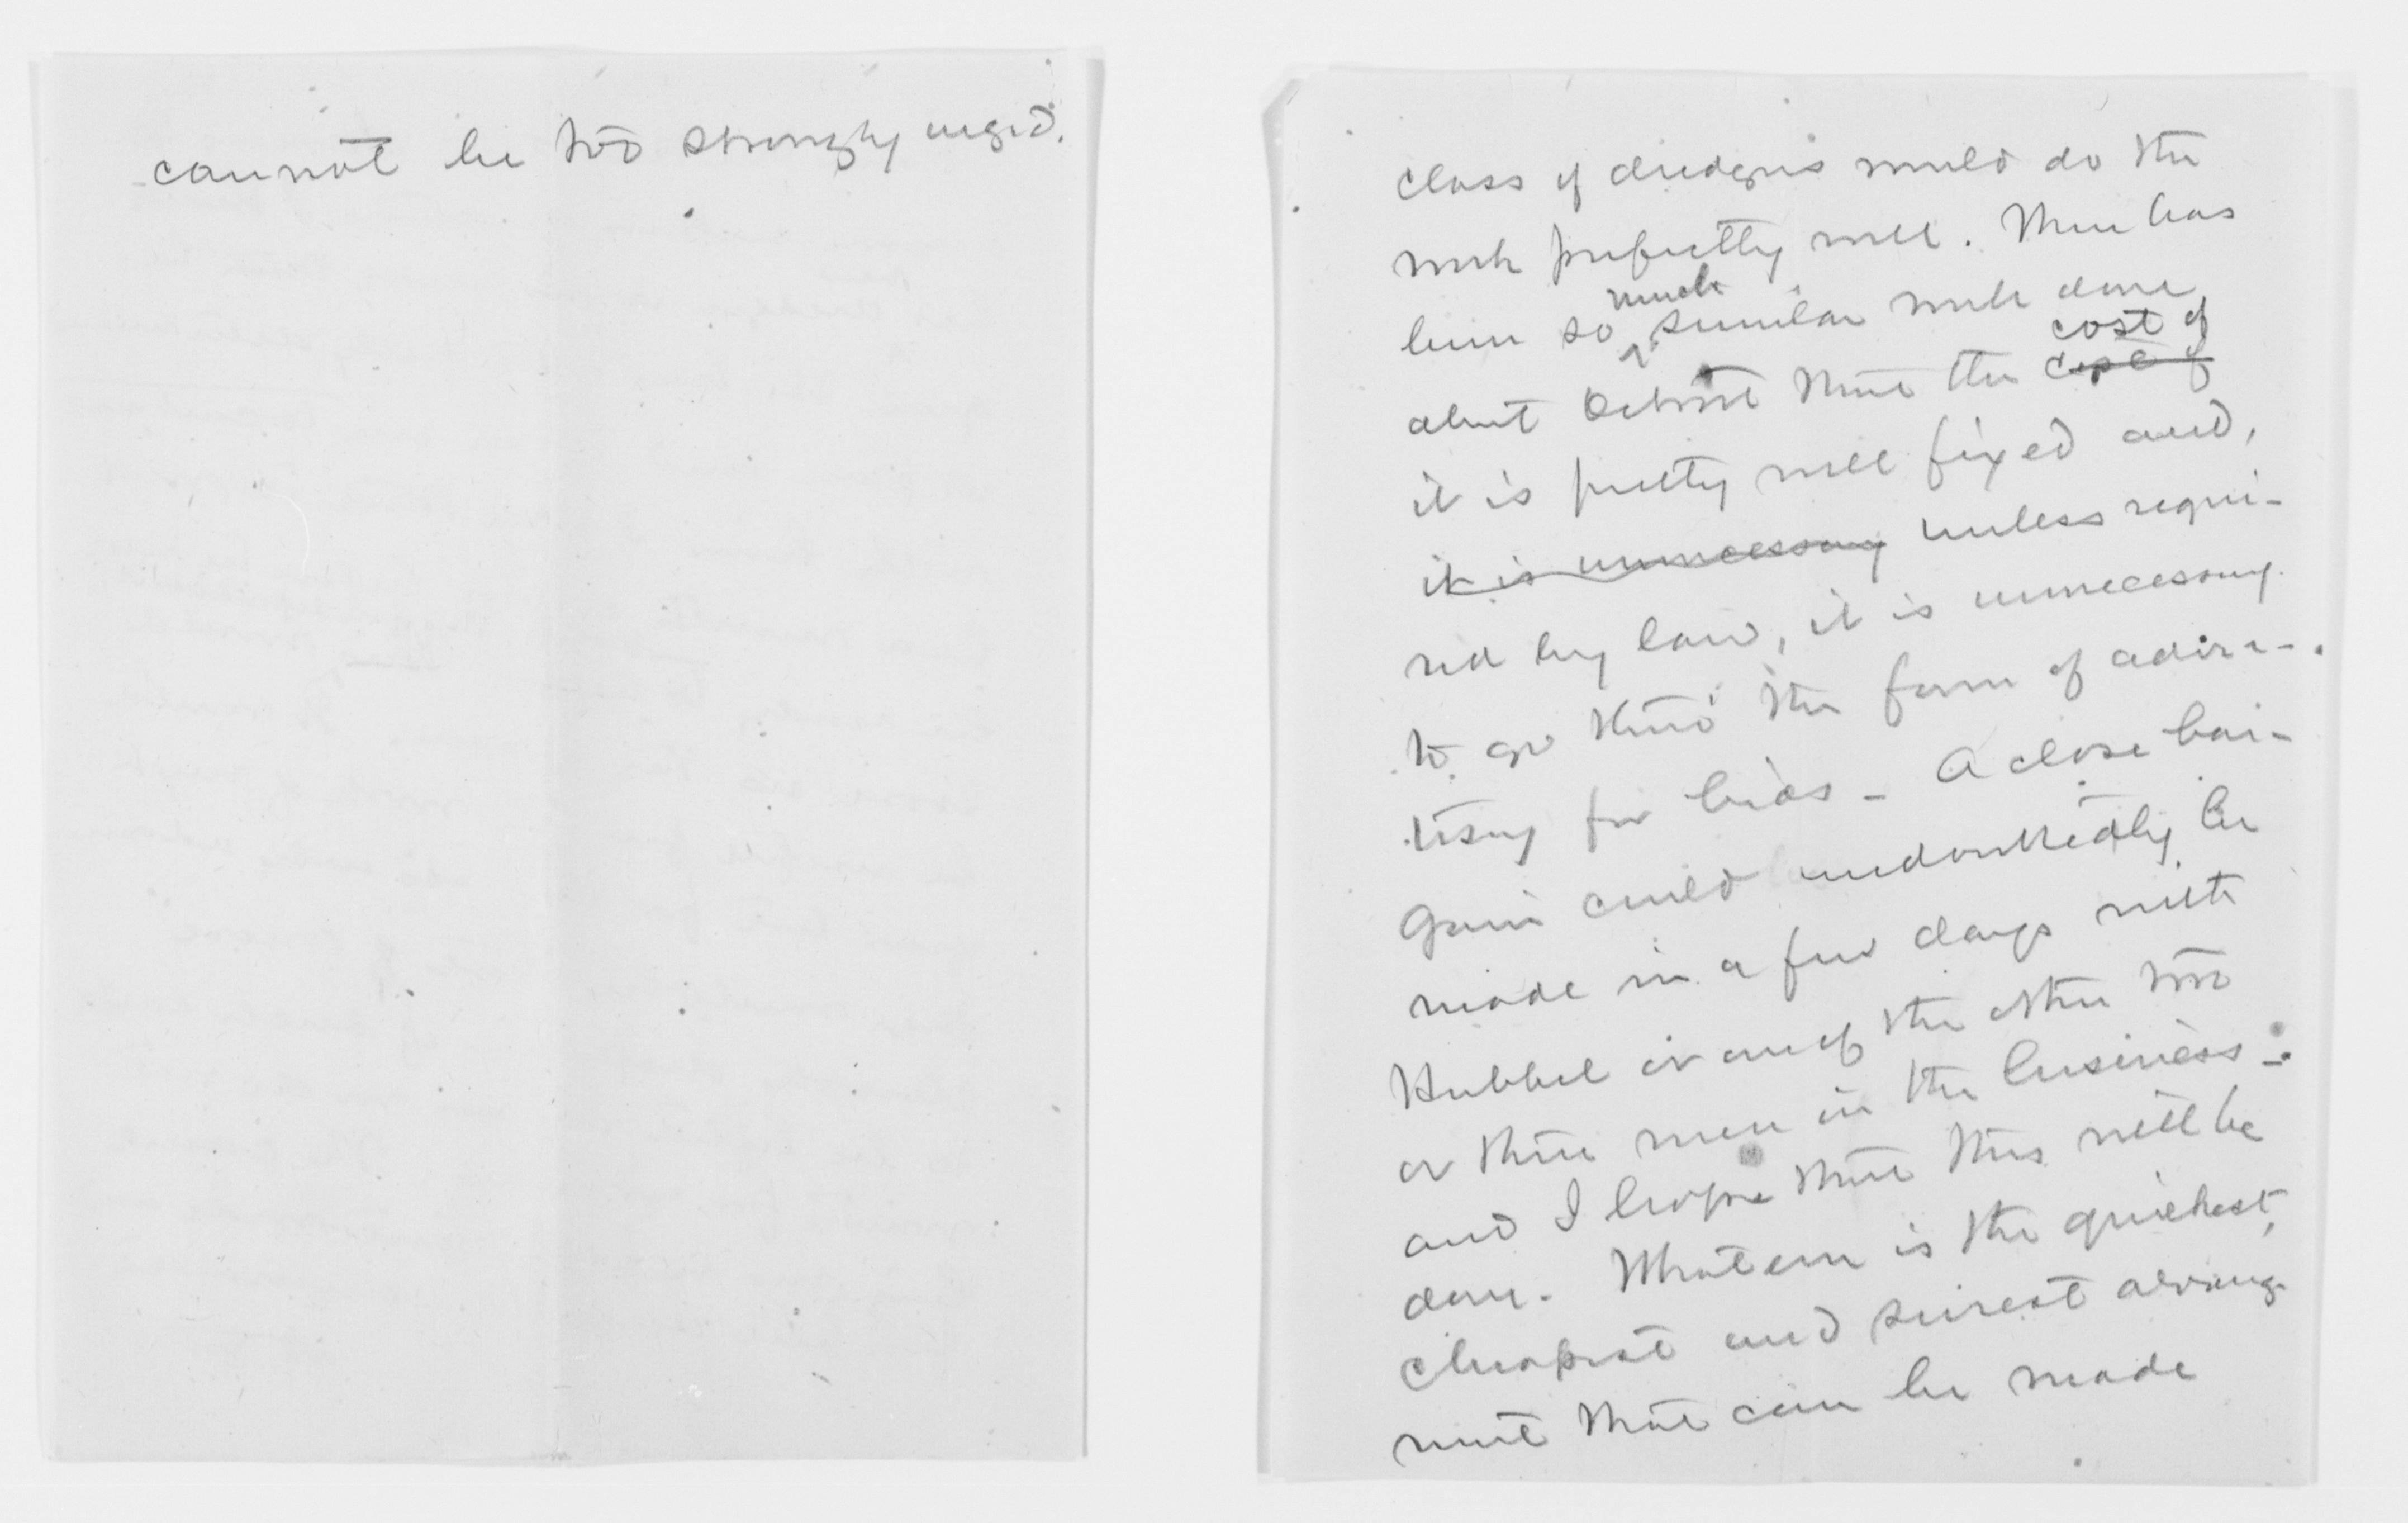 cannot be too strongly urged.
class of dredges would do the
work perfectly well. There has
been so much similar work done
about Detroit that the cost of
it is pretty well fixed and,
it is unnecessary unless requi-
red by law, it is unnecessary
to go thro' the form of adver-
tising for bids - A close bar-
gain could undoubtedly be
made in a few days with
Hubbel or one of the other two
or three men in the business -
and I hope that this will be
done. Whatever is the quickest,
cheapest and surest arrange-
ment that can be made